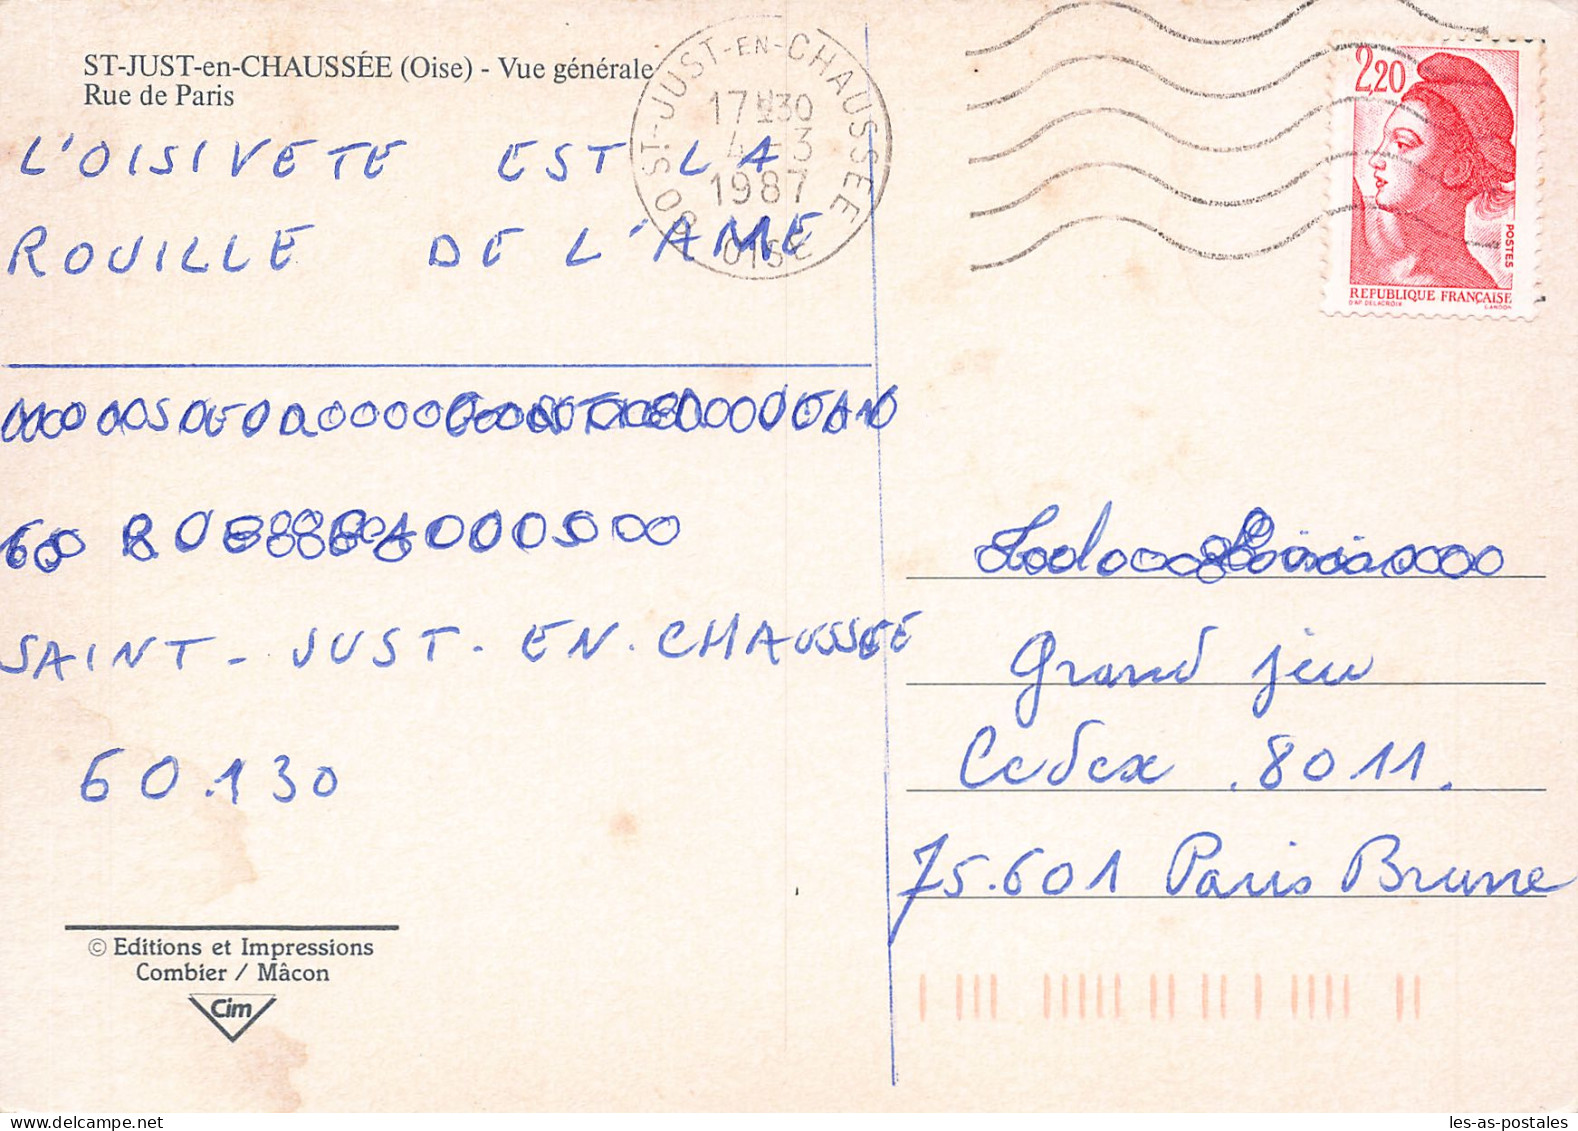 ST-JUST-en-CHAUSSÉE (Oise) - Vue générale
Rue de Paris
60 ST-JUST-EN-CHAUSSEE
17H30
4-3
1987
OISE
2,20
POSTES
REPUBLIQUE FRANÇAISE
D'AP. DELACROIX GANDON
L'OISIVETE EST LA
ROUILLE DE L'AME
SAINT-JUST-EN-CHAUSSEE
60.130
Grand jeu
Cedex .8011.
75.601 Paris Brune
© Editions et Impressions
Combier / Mâcon
Cim
les-as-postales